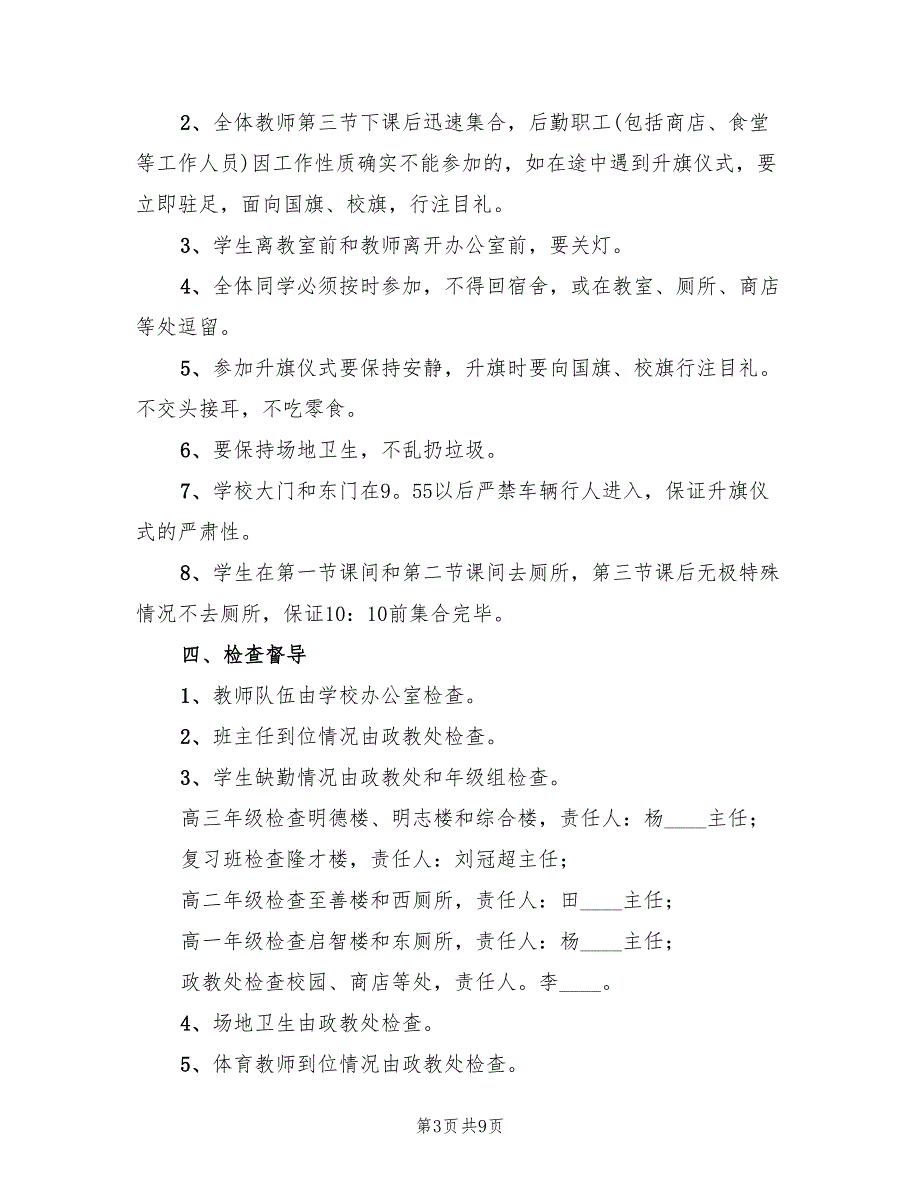 2、全体教师第三节下课后迅速集合，后勤职工(包括商店、食堂
等工作人员)因工作性质确实不能参加的，如在途中遇到升旗仪式，要
立即驻足，面向国旗、校旗，行注目礼。
3、学生离教室前和教师离开办公室前，要关灯。
4、全体同学必须按时参加，不得回宿舍，或在教室、厕所、商店
等处逗留。
5、参加升旗仪式要保持安静，升旗时要向国旗、校旗行注目礼。
不交头接耳，不吃零食。
6、要保持场地卫生，不乱扔垃圾。
7、学校大门和东门在9。55以后严禁车辆行人进入，保证升旗仪
式的严肃性。
8、学生在第一节课间和第二节课间去厕所，第三节课后无极特殊
情况不去厕所，保证10：10前集合完毕。
四、检查督导
1、教师队伍由学校办公室检查。
2、班主任到位情况由政教处检查。
3、学生缺勤情况由政教处和年级组检查。
高三年级检查明德楼、明志楼和综合楼，责任人：杨____主任；
复习班检查隆才楼，责任人：刘冠超主任；
高二年级检查至善楼和西厕所，责任人：田____主任；
高一年级检查启智楼和东厕所，责任人：杨____主任；
政教处检查校园、商店等处，责任人。李____。
4、场地卫生由政教处检查。
5、体育教师到位情况由政教处检查。
第3页 共9页